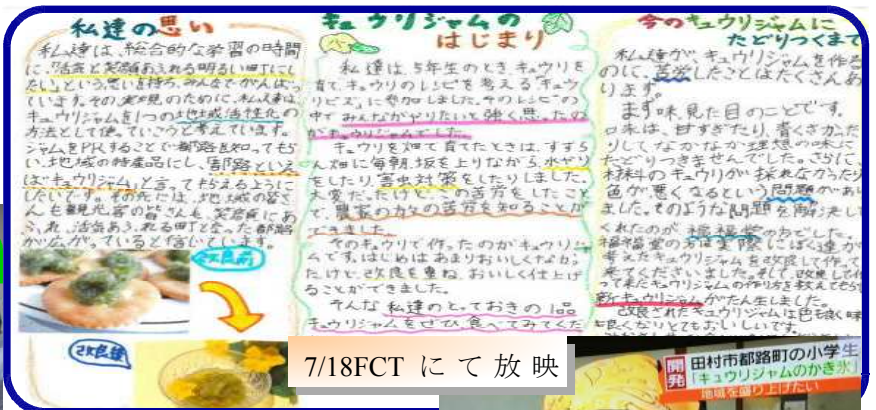 私達の思い
私達は、総合的な学習の時間
に「活気と笑顔あふれる明るい町にし
たい」という思いを持ち、みんなでがんばっ
ています。その実現のために、私達は、
キュウリジャムを1つの地域活性化の
方法として使っていこうと考えています。
ジャムをPRすることで都路を知ってもら
い、地域の特産品にし、「都路といえ
ばキュウリジャム」と言ってもらえるように
したいです。その先には、地域の皆さ
んも観光客の皆さんも、笑顔にあ
ふれ、活気あふれる町となった都路
が広がっていると信じています。
改良前
改良後
キュウリジャムの
はじまり
私達は、5年生のとき、キュウリを
育て、キュウリのレシピを考える「キュウ
リビズ」に参加しました。そのレシピの
中でみんながやりたいと強く思ったの
がキュウリジャムでした。
キュウリを畑で育てたときは、すずら
ん畑に毎朝、坂を上りながら、水やり
をしたり、害虫対策をしたりしました。
大変だったけど、この苦労をしたこと
で、農家の方々の苦労を知ることが
できました。
そのキュウリで作ったのがキュウリジャ
ムです。はじめはあまりおいしくなかっ
たけど、改良を重ね、おいしく仕上げ
ることができました。
そんな私達のとっておきの1品
キュウリジャムをぜひ食べてみてくだ
今のキュウリジャムに
たどりつくまで
私達がキュウリジャムを作る
のに、苦労したことはたくさんあ
ります。
まず味、見た目のことです。
味は、甘すぎたり、青くさかった
りしてなかなか理想の味に
たどりつきませんでした。さらに、
材料のキュウリが採れなかったり
色が悪くなるという問題があり
ました。そのような問題を解決して
くれたのが福福堂の方でした。
福福堂の方は実際にぼく達が
考えたキュウリジャムを改良して作って
来てくださいました。そして、改良して作
って来たキュウリジャムの作り方を教えてもらい
新キュウリジャムがたん生しました。
改良されたキュウリジャムは色も良く味
も良くなりとてもおいしいです。
7/18FCT にて放映
開発
田村市都路町の小学生
「キュウリジャムのかき氷」
地域を盛り上げたい